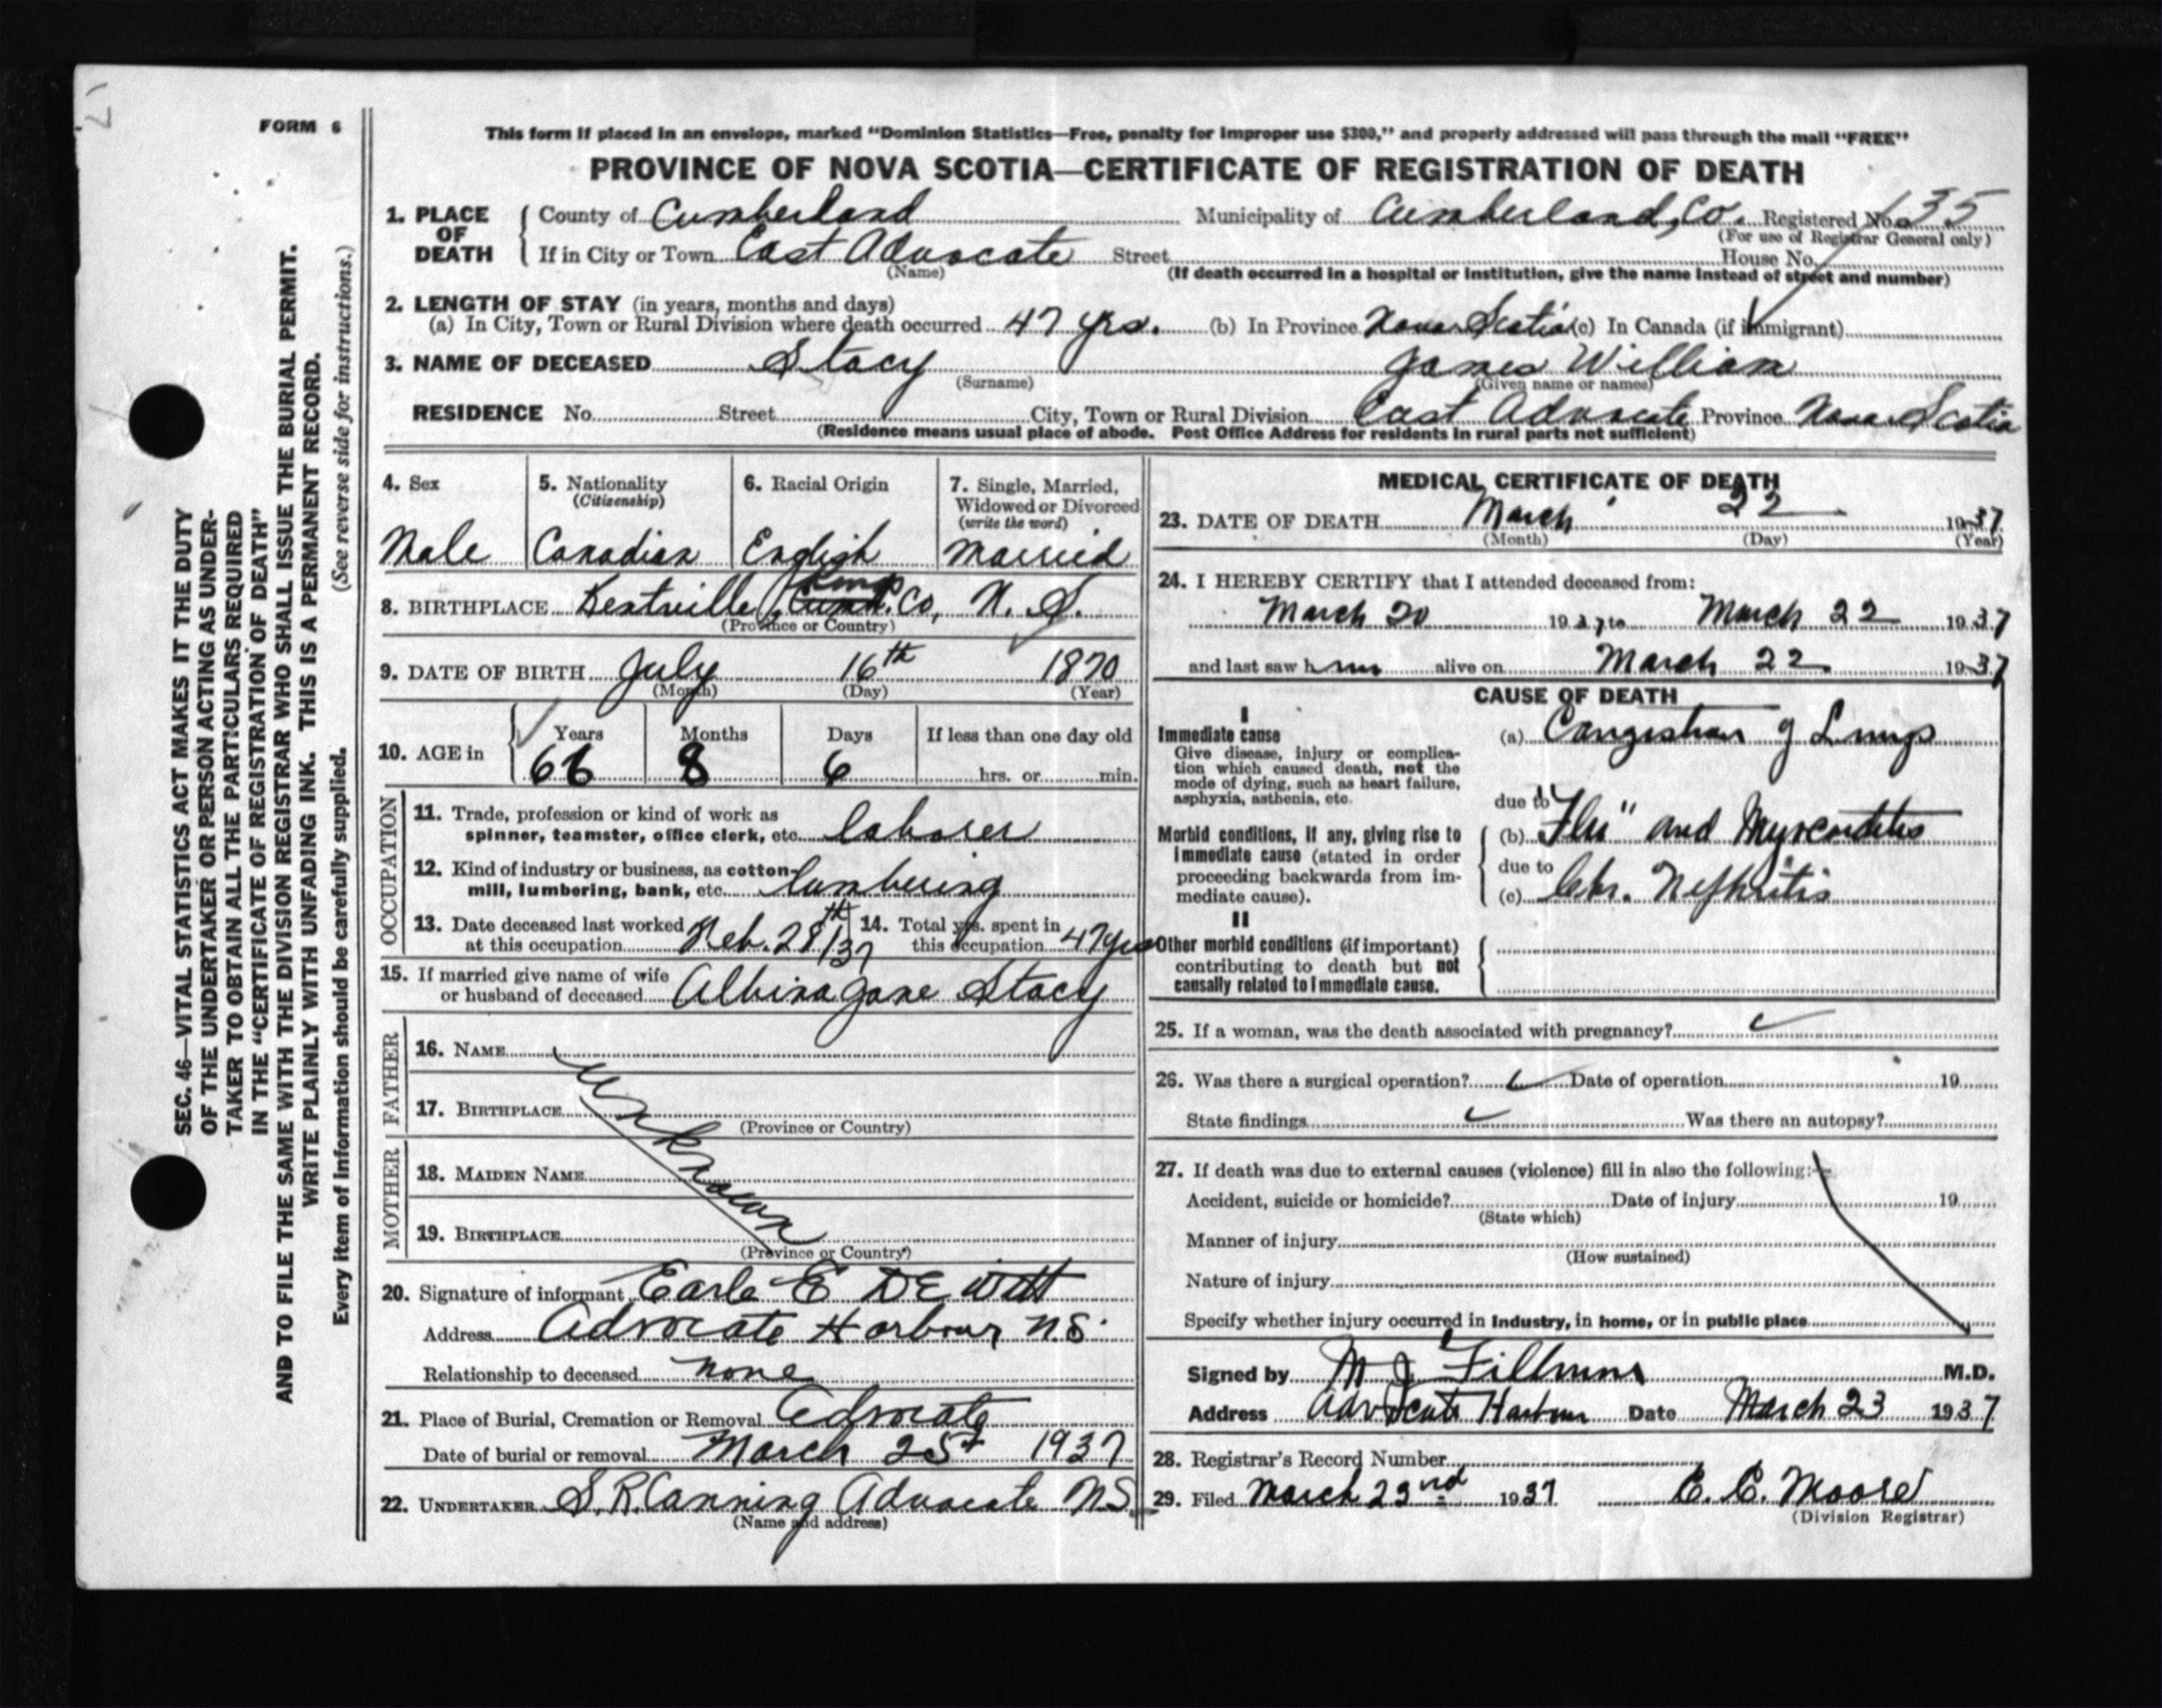 FORM 6
This form if placed in an envelope, marked “Dominion Statistics—Free, penalty for improper use $300,” and properly addressed will pass through the mail “FREE”
PROVINCE OF NOVA SCOTIA—CERTIFICATE OF REGISTRATION OF DEATH
1. PLACE OF DEATH County of Cumberland Municipality of Cumberland, Co. Registered No. 135
(For use of Registrar General only)
If in City or Town East Advocate Street House No.
(Name) (If death occurred in a hospital or institution, give the name instead of street and number)
2. LENGTH OF STAY (in years, months and days)
(a) In City, Town or Rural Division where death occurred 47 yrs. (b) In Province Nova Scotia (c) In Canada (if immigrant)
3. NAME OF DECEASED Stacy James William
(Surname) (Given name or names)
RESIDENCE No. Street City, Town or Rural Division East Advocate Province Nova Scotia
(Residence means usual place of abode. Post Office Address for residents in rural parts not sufficient)
4. Sex
Male
5. Nationality
(Citizenship)
Canadian
6. Racial Origin
English
7. Single, Married,
Widowed or Divorced
(write the word)
Married
Kings
8. BIRTHPLACE Kentville, Cumb. Co, N. S.
(Province or Country)
9. DATE OF BIRTH July 16th 1870
(Month) (Day) (Year)
10. AGE in Years Months Days If less than one day old
66 8 6 hrs. or min.
OCCUPATION
11. Trade, profession or kind of work as
spinner, teamster, office clerk, etc. laborer
12. Kind of industry or business, as cotton-
mill, lumbering, bank, etc. lumbering
13. Date deceased last worked
at this occupation Feb. 28th/37
14. Total yrs. spent in
this occupation 47 yrs
15. If married give name of wife
or husband of deceased Albina Jane Stacy
FATHER
16. NAME
17. BIRTHPLACE
(Province or Country)
unknown
MOTHER
18. MAIDEN NAME
19. BIRTHPLACE
(Province or Country)
20. Signature of informant Earle E DEWitt
Address Advocate Harbour, N.S.
Relationship to deceased none
21. Place of Burial, Cremation or Removal Advocate
Date of burial or removal March 25t 1937
22. UNDERTAKER S. R. Canning Advocate N.S.
(Name and address)
MEDICAL CERTIFICATE OF DEATH
23. DATE OF DEATH March 22 1937
(Month) (Day) (Year)
24. I HEREBY CERTIFY that I attended deceased from:
March 20 1937 to March 22 1937
and last saw him alive on March 22 1937
CAUSE OF DEATH
I
Immediate cause
Give disease, injury or complica-
tion which caused death, not the
mode of dying, such as heart failure,
asphyxia, asthenia, etc.
(a) Congestion of Lungs
due to
Morbid conditions, if any, giving rise to
immediate cause (stated in order
proceeding backwards from im-
mediate cause).
(b) "Flu" and Myocarditis
due to
(c) Chr. Nephritis
II
Other morbid conditions (if important)
contributing to death but not
causally related to immediate cause.
25. If a woman, was the death associated with pregnancy?
26. Was there a surgical operation? Date of operation 19
State findings Was there an autopsy?
27. If death was due to external causes (violence) fill in also the following:—
Accident, suicide or homicide? Date of injury 19
(State which)
Manner of injury
(How sustained)
Nature of injury
Specify whether injury occurred in industry, in home, or in public place
Signed by M J Fillmore M.D.
Address Advocate Harbour Date March 23 1937
28. Registrar's Record Number
29. Filed March 23nd 1937 E. C. Moore
(Division Registrar)
SEC. 46—VITAL STATISTICS ACT MAKES IT THE DUTY
OF THE UNDERTAKER OR PERSON ACTING AS UNDER-
TAKER TO OBTAIN ALL THE PARTICULARS REQUIRED
IN THE “CERTIFICATE OF REGISTRATION OF DEATH”
AND TO FILE THE SAME WITH THE DIVISION REGISTRAR WHO SHALL ISSUE THE BURIAL PERMIT.
WRITE PLAINLY WITH UNFADING INK. THIS IS A PERMANENT RECORD.
Every item of information should be carefully supplied. (See reverse side for instructions.)